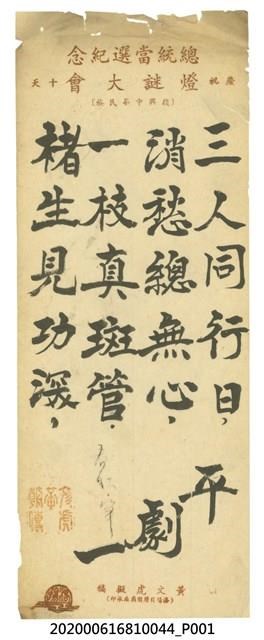 總統當選紀念
慶祝 燈謎大會 十天
三人同行日，
消愁總無心，
一枝真斑管，
楮生見功深，
平
劇
一
黃文虎擬稿
202000616810044_P001